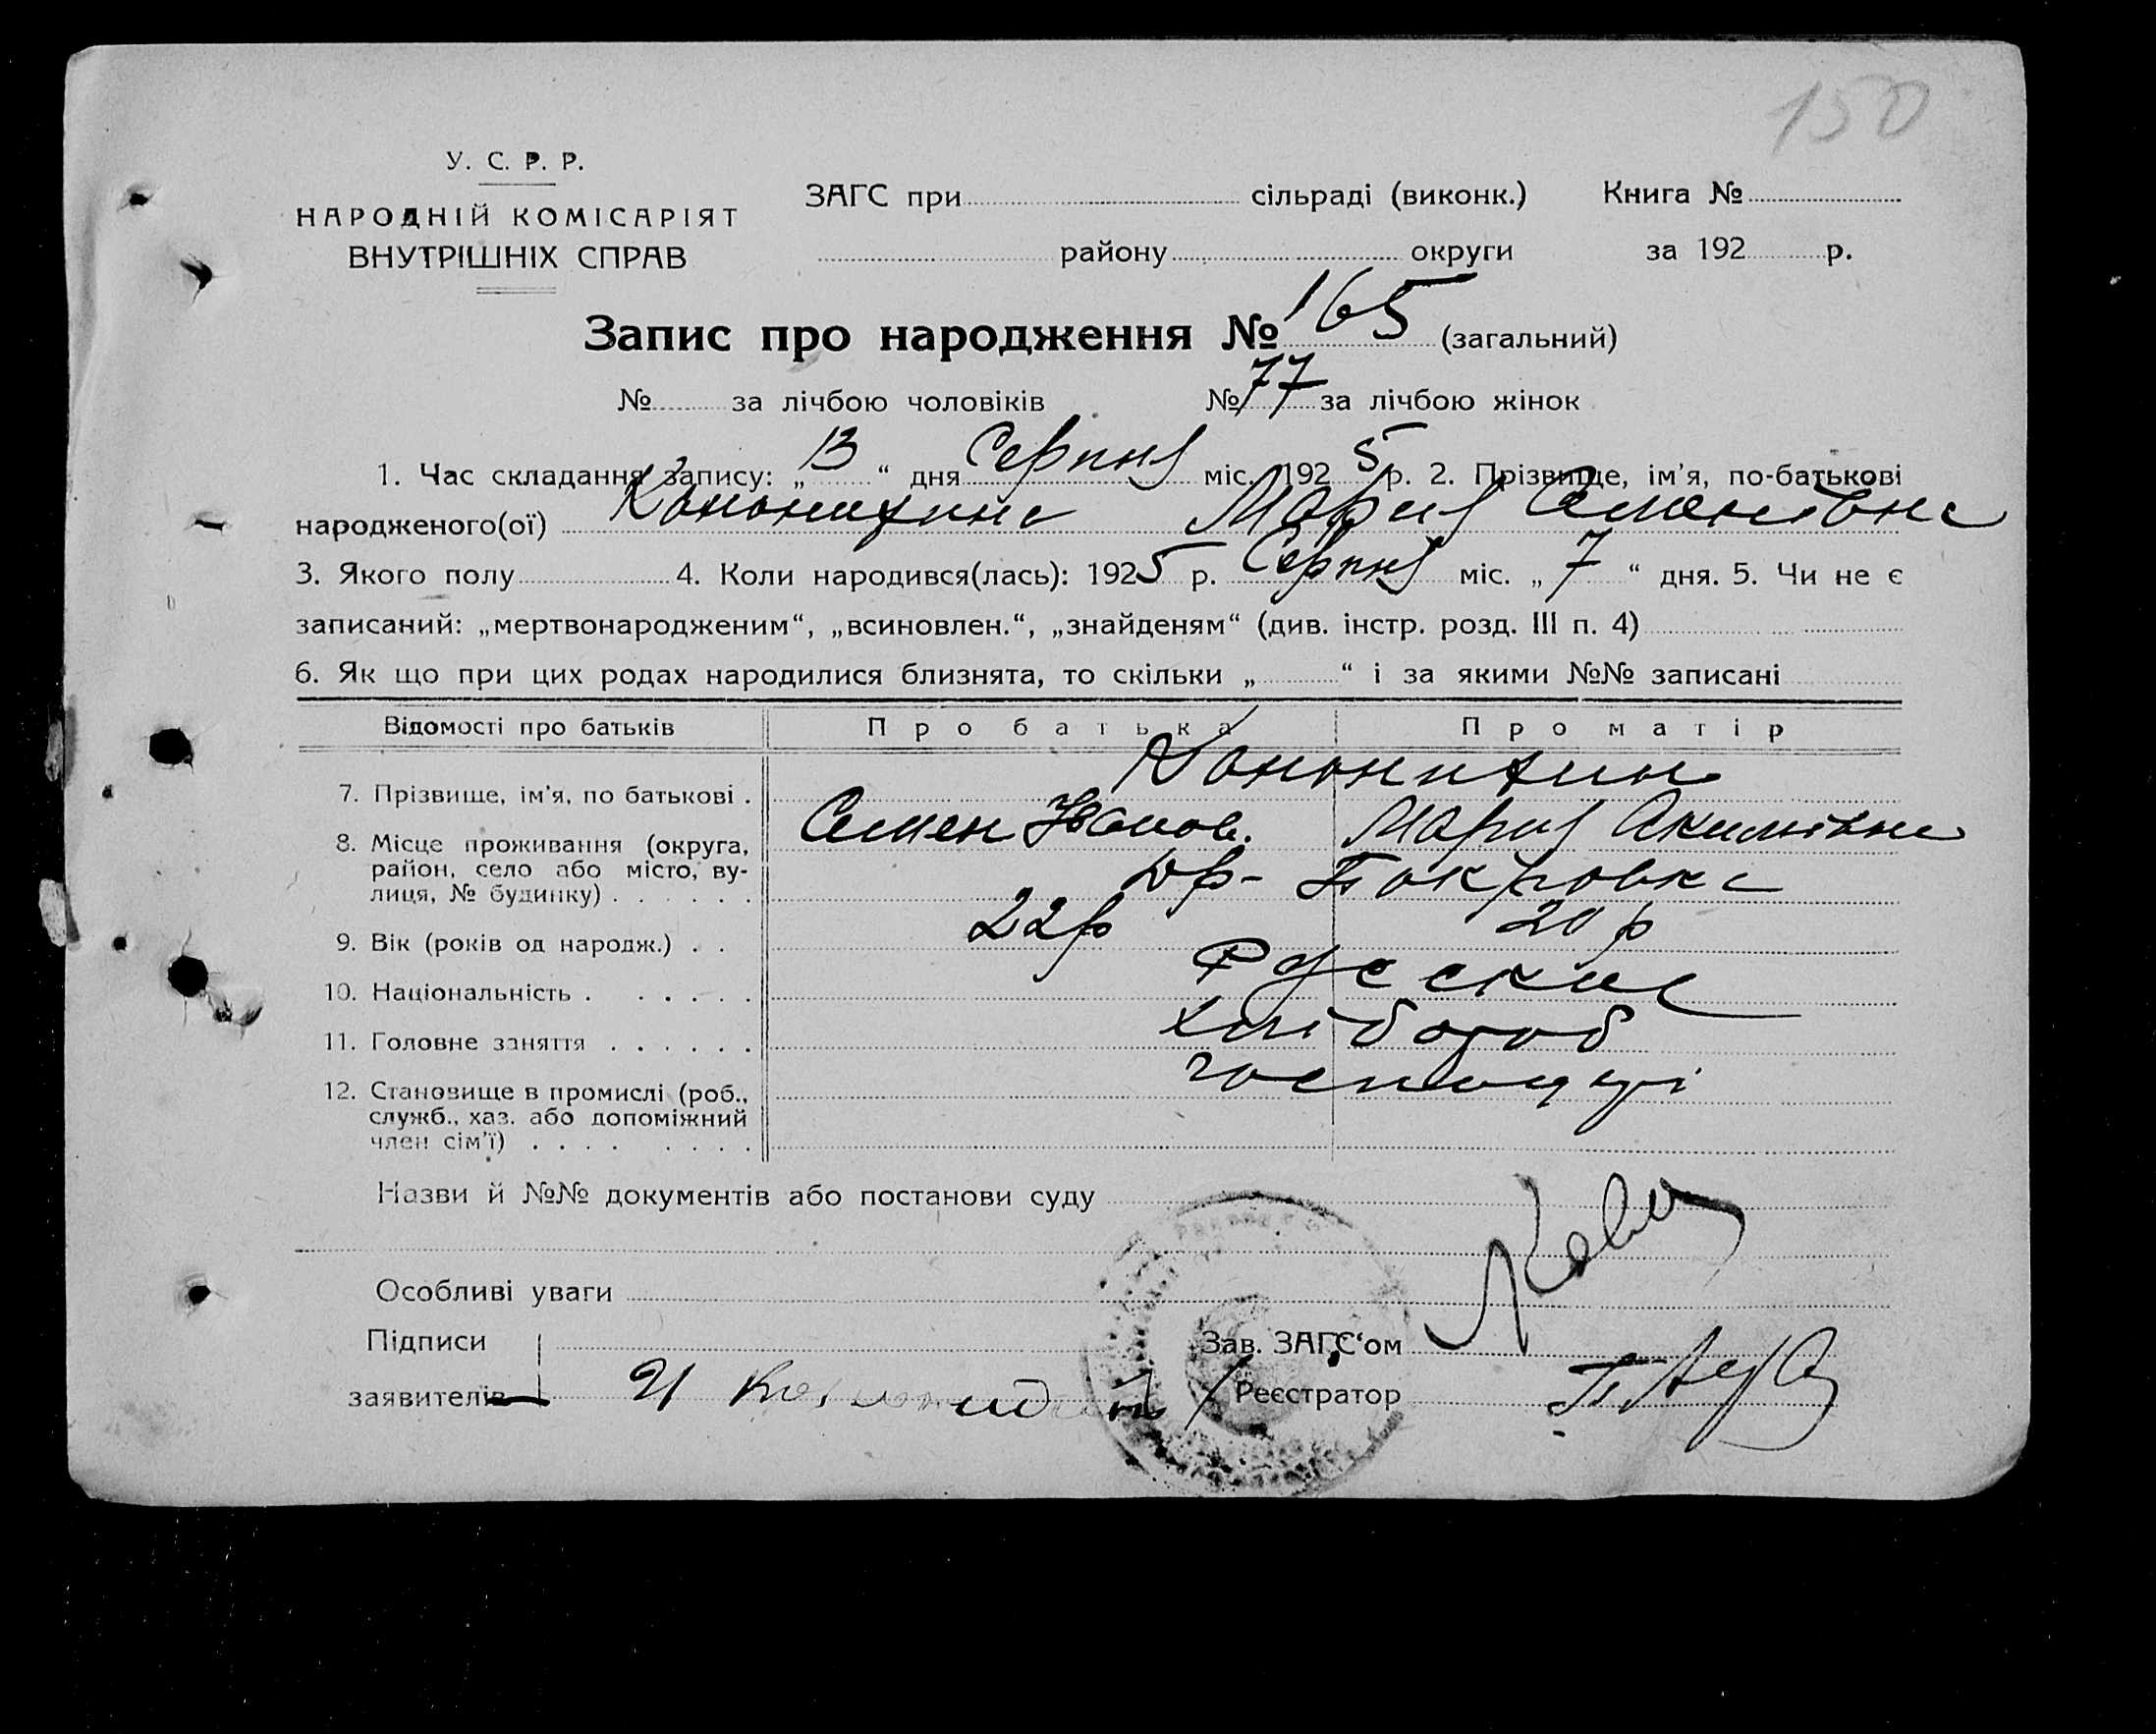 150
У. С. Р. Р.
НАРОДНІЙ КОМІСАРІЯТ
ВНУТРІШНІХ СПРАВ
ЗАГС при сільраді (виконк.) Книга №
району округи за 192 р.
Запис про народження № 165 (загальний)
№ за лічбою чоловіків № 77 за лічбою жінок
1. Час складання запису: „ 13 “ дня Серпня міс. 192 5 р. 2. Прізвище, ім'я, по-батькові
народженого(ої) Мария Семенівна
3. Якого полу 4. Коли народився(лась): 1925 р. Серпня міс. „ 7 “ дня. 5. Чи не є
записаний: „мертвонародженим“, „всиновлен.“, „знайденям“ (див. інстр. розд. III п. 4)
6. Як що при цих родах народилися близнята, то скільки „ “ і за якими №№ записані
Відомості про батьків Про батька Про матір
7. Прізвище, ім'я, по батькові .
Семен Іванов. Мария Акимівна
8. Місце проживання (округа,
район, село або місто, ву-
лиця, № будинку) . . . . . .
Покровка
9. Вік (років од народж.) . . 22 р 20 р
10. Національність . . . . . . Русские
11. Головне заняття . . . . . . хліbороб
12. Становище в промислі (роб.,
служб., хаз. або допоміжний
член сім'ї) . . . . . . . .
Назви й №№ документів або постанови суду
Особливі уваги
Підписи
заявителів
Зав. ЗАГС‘ом
Реєстратор